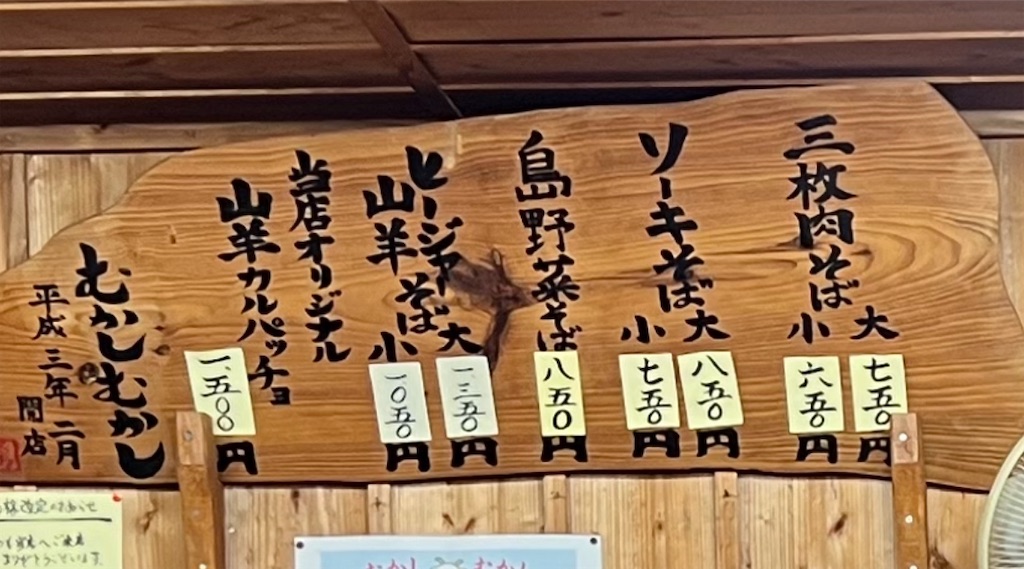 三枚肉そば
大
七五〇
円
小
六五〇
円
ソーキそば
大
八五〇
円
小
七五〇
円
島野菜そば
八五〇
円
ヒージャー
山羊そば
大
一、三五〇
円
小
一、〇五〇
円
当店オリジナル
山羊カルパッチョ
一、五〇〇
円
むかしむかし
平成三年二月
開店
改定のお知らせ